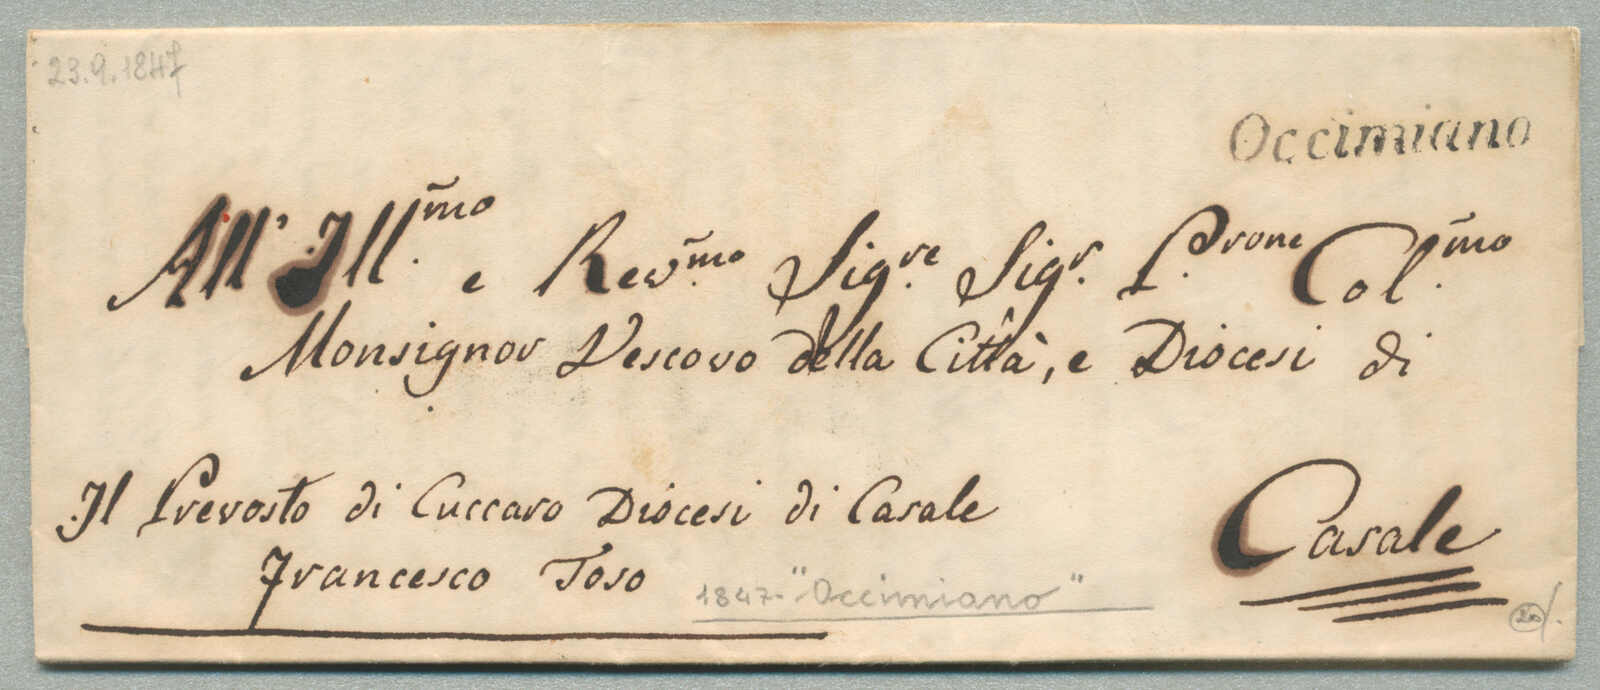 23.9.1847
Occimiano
All' Ill.mo e Rev.mo Sig.re Sig.r P.rone Col.mo
Monsignor Vescovo della Città, e Diocesi di
Casale
Il Prevosto di Cuccaro Diocesi di Casale
Francesco Toso
1847 - "Occimiano"
20/.